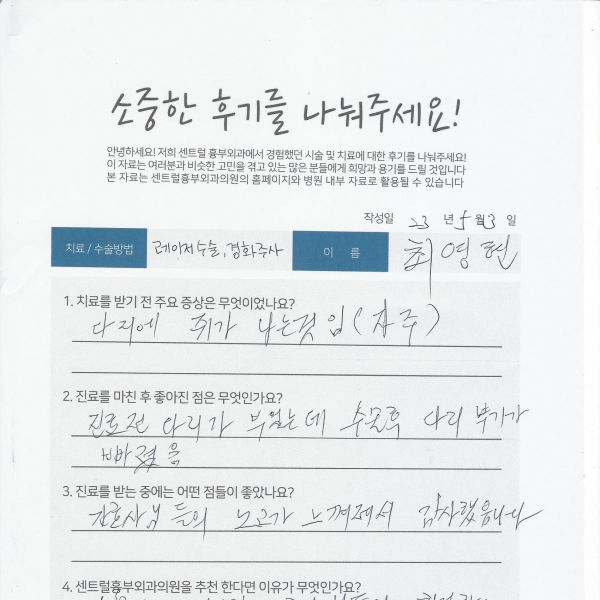 소중한 후기를 나눠주세요!
안녕하세요! 저희 센트럴 흉부외과에서 경험했던 시술 및 치료에 대한 후기를 나눠주세요!
이 자료는 여러분과 비슷한 고민을 겪고 있는 많은 분들에게 희망과 용기를 드릴 것입니다
본 자료는 센트럴흉부외과의원의 홈페이지와 병원 내부 자료로 활용될 수 있습니다
작성일 23 년 5 월 3 일
치료 / 수술방법 레이저수술, 경화주사 이 름 최영현
1. 치료를 받기 전 주요 증상은 무엇이었나요?
다리에 쥐가 나는것 임 (자주)
2. 진료를 마친 후 좋아진 점은 무엇인가요?
진료전 다리가 부었는데 수술후 다리 붓기가
빠졌음
3. 진료를 받는 중에는 어떤 점들이 좋았나요?
간호사님들의 노고가 느껴져서 감사했읍니다
4. 센트럴흉부외과의원을 추천 한다면 이유가 무엇인가요?